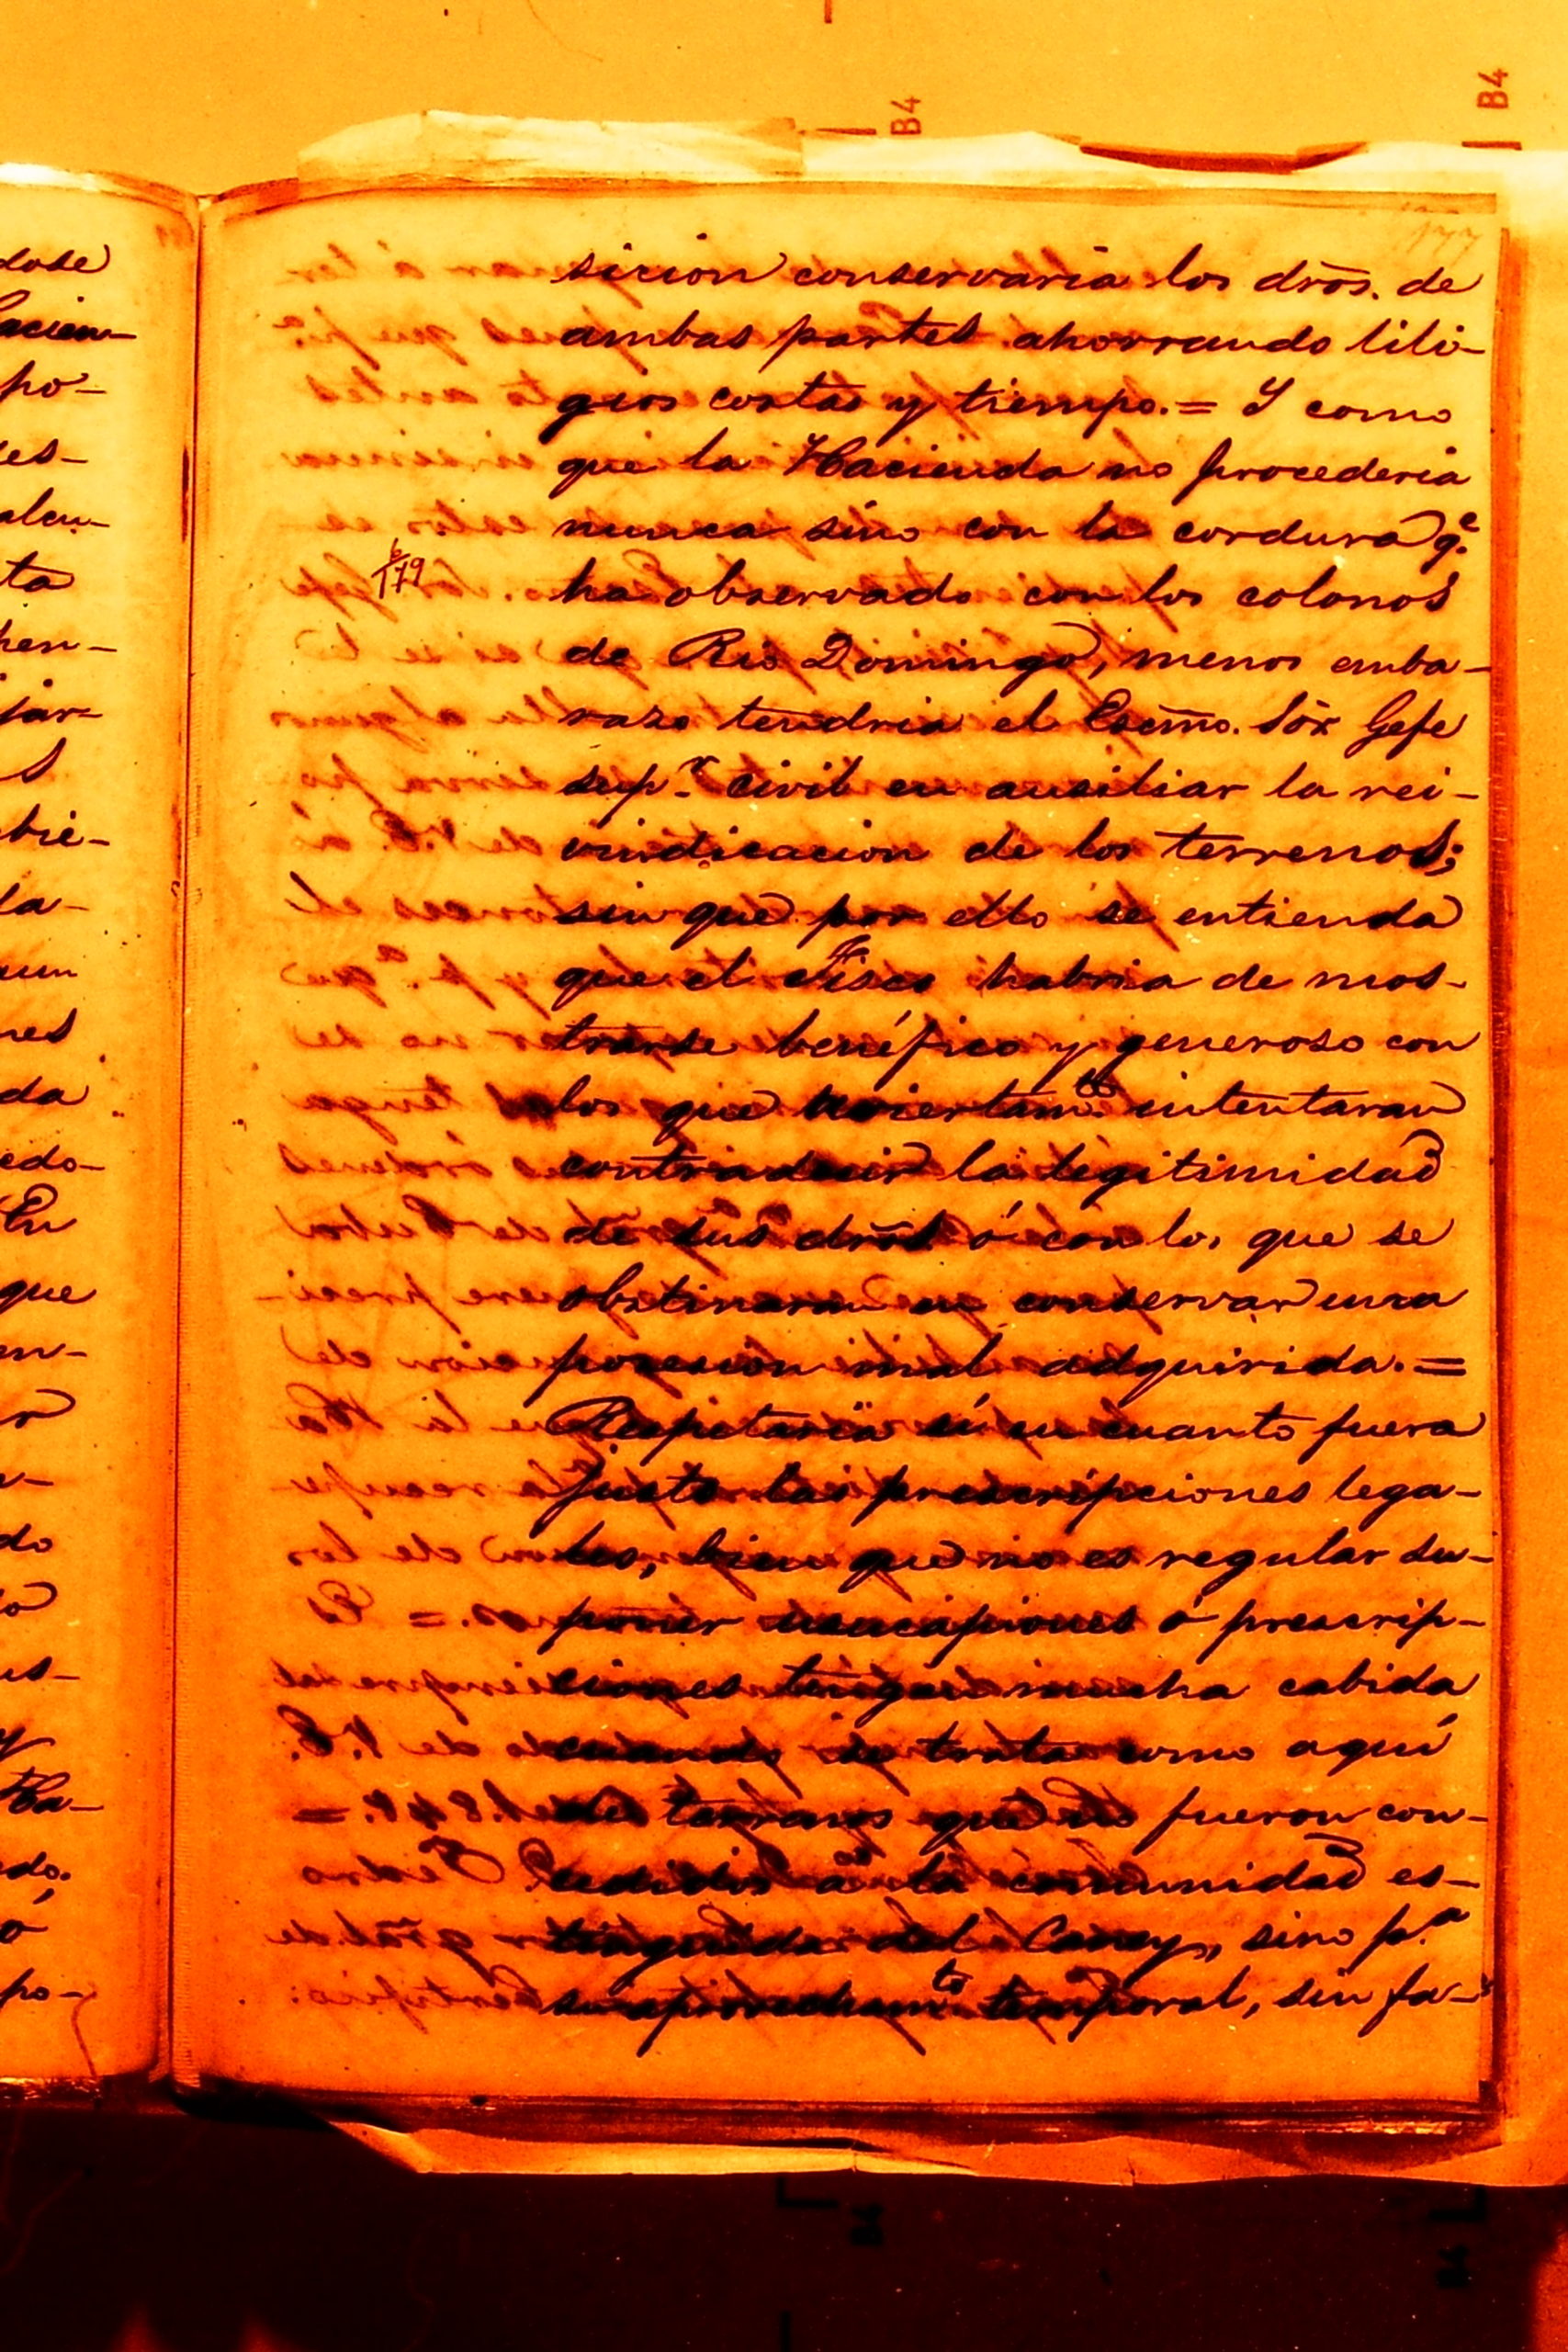 177
sicion conservaria los dr̃os. de
ambas partes ahorrando liti-
gios costas y tiempo. = Y como
que la Hacienda no procederia
nunca sino con la cordura q.e
ha observado con los colonos
de Rio Domingo, menos emba-
razo tendria el Escmo. Sõr Gefe
sup.r civil en ausiliar la rei-
vindicacion de los terrenos;
sin que por ello se entienda
que el Fisco habria de mos-
trarse benéfico y generoso con
los que intentaran
contradecir la legitimidad
de sus dr̃os ó con los que se
obstinaran en conservar una
posesion mal adquirida. =
Respetaria si en cuanto fuera
justo las prescripciones lega-
les, bien que no es regular su-
poner usucapiones ó prescrip-
ciones tengan mucha cabida
cuando se trata como aqui
de terrenos que no fueron con-
cedidos a la comunidad es-
tinguida del Caney, sino p.a
su aprovecham.to temporal, sin fa-
179
dose
acien-
po-
es-
alcu-
ta
pen-
jar-
s
bie-
la-
un
nes
da
edo-
En
que
en-
do
us-
y
Ha-
edo.
ó
po-
B4
B4
B4
B4